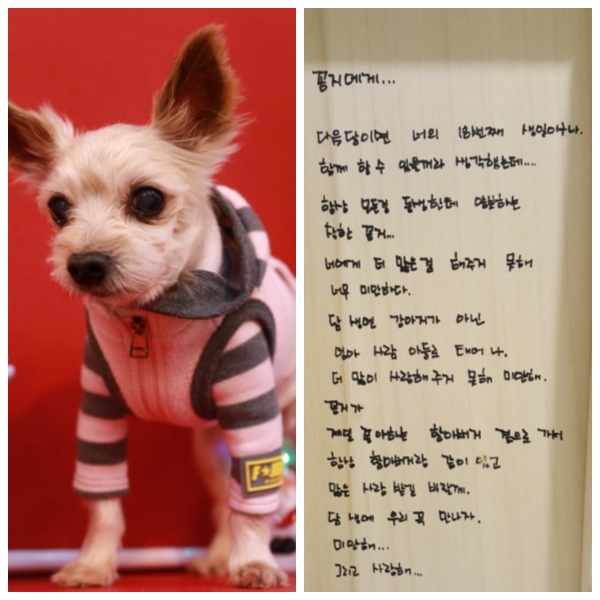 꽁지에게...
다음달이면 너의 18번째 생일이구나.
함께 할 수 있을꺼라 생각했는데....
항상 모든걸 동생한테 양보하는
착한 꽁지...
너에게 더 많은걸 해주지 못해
너무 미안하다.
담 생엔 강아지가 아닌
엄마 사람 아들로 태어나.
더 많이 사랑해 주지 못해 미안해.
꽁지가
제일 좋아하는 할아버지 곁으로 가서
항상 할아버지랑 같이 있고
많은 사랑 받길 바랄게.
담 생에 우리 꼭 만나자.
미안해...
그리고 사랑해...